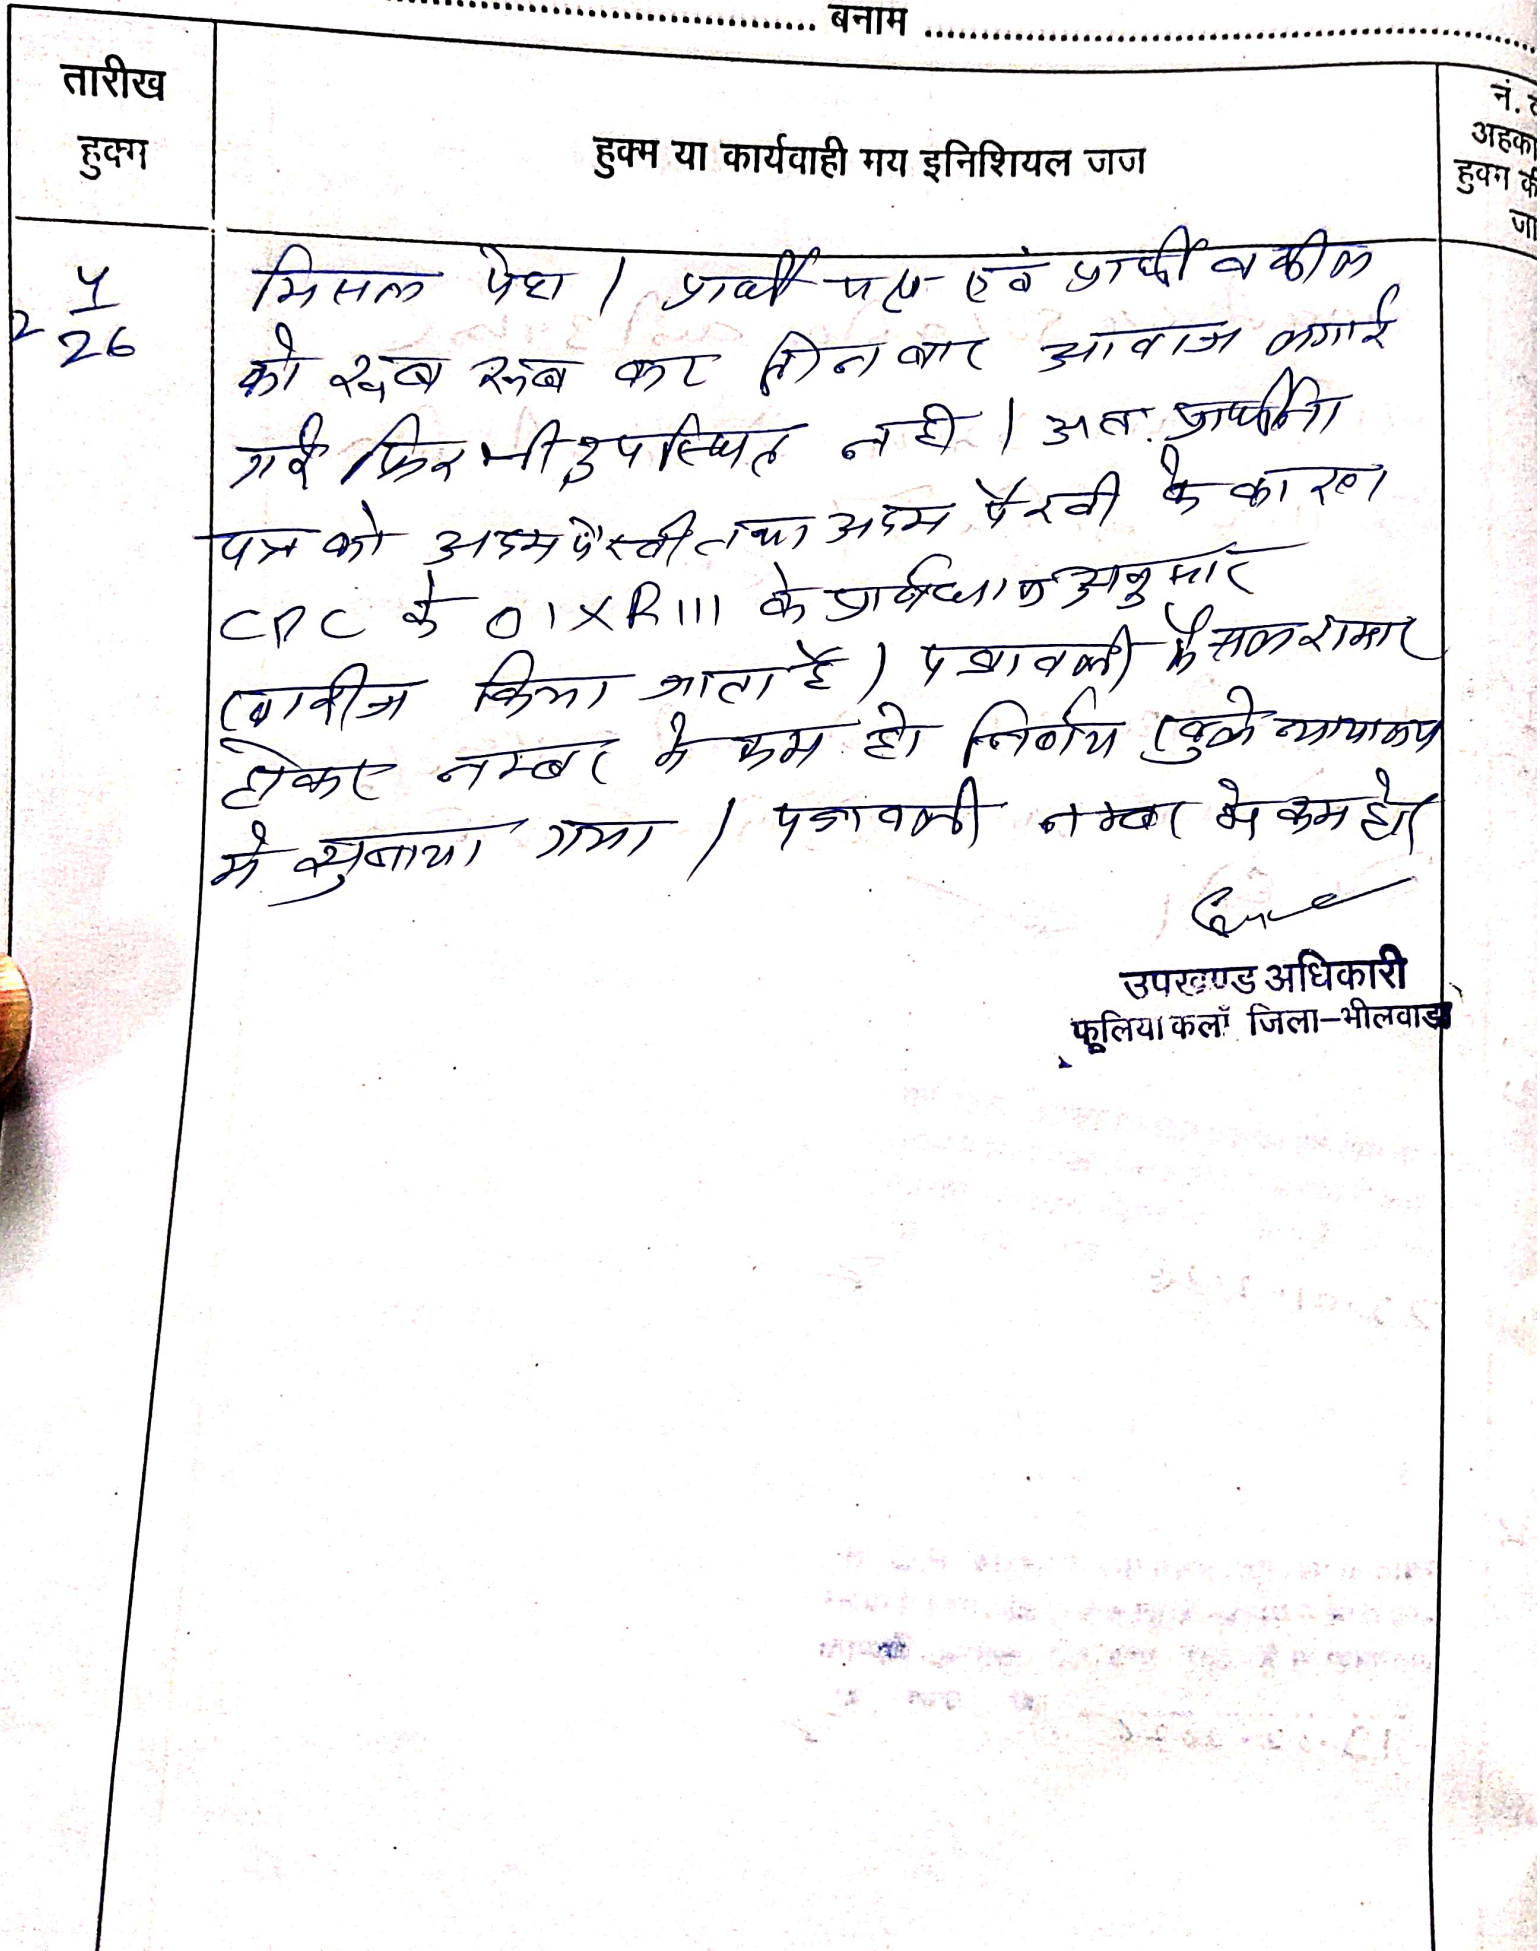 बनाम
तारीख
हुक्म
हुक्म या कार्यवाही मय इनिशियल जज
नं.
अहका
हुक्म की
जा
2 4/26
मिसल पेश । प्रार्थी पक्ष एवं प्रार्थी वकील
को रूब रूब कर तीन बार आवाज लगाई
गई फिर भी उपस्थित नही । अतः प्रार्थना
पत्र को अदम पैरवी तथा अदम पैरवी के कारण
CPC के O IX R III के प्रावधान अनुसार
खारीज किया जाता है । पत्रावली फैसल शुमार
होकर नम्बर से कम हो निर्णय खुले न्यायालय
मे सुनाया गया । पत्रावली नम्बर से कम हो ।
उपखण्ड अधिकारी
फूलिया कलाँ जिला-भीलवाडा